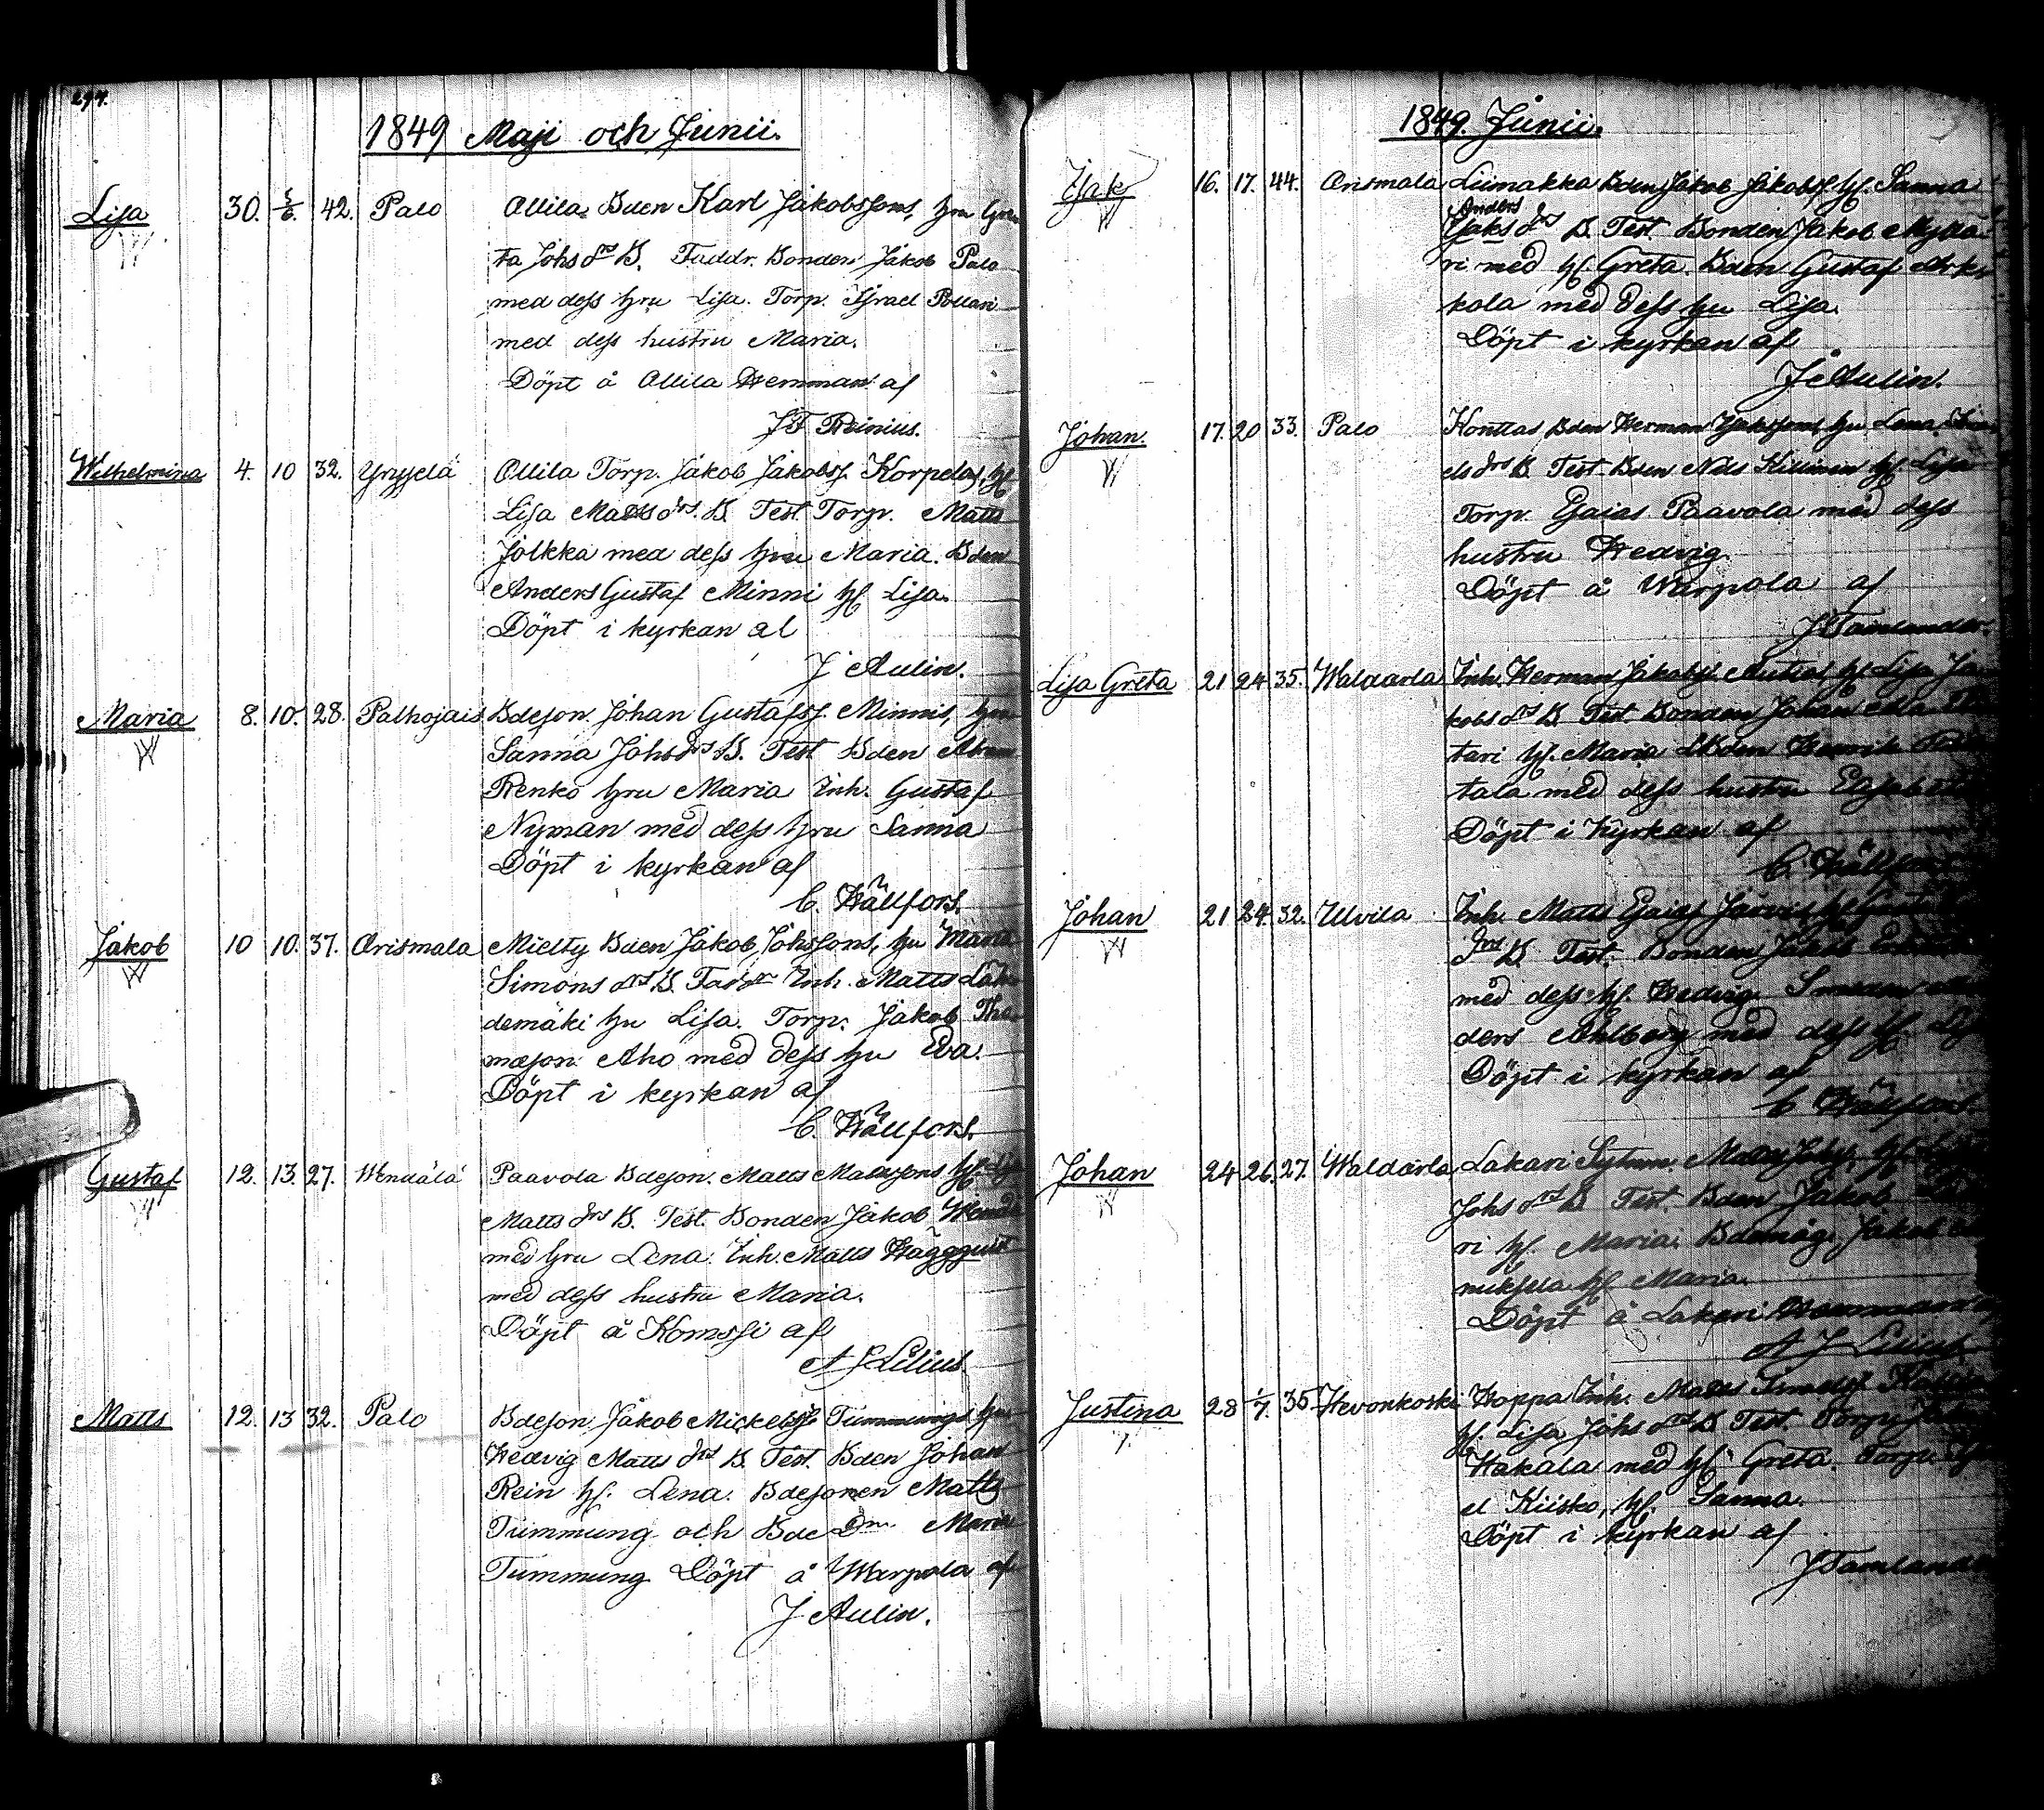 294.
1849 Maji och Junii.
Lisa 30. 5/6. 42. Palo Ollila Bden Karl Jakobssons, hru Gre
ta Johs drs B. Faddr. Bonden Jakob Palo
med dess hru Lisa. Torp. Israel Pollari
med dess hustru Maria.
Döpt å Ollila Hemman af
J F Reinius.
Wilhelmina 4. 10 32. Yrjjelä Ollila Torp. Jakob Jakobss. Korpelas, h.
Lisa Matts drs. B. Test. Torp. Matts
Jolkka med dess hru Maria. Bden
Anders Gustaf Minni h. Lisa.
Döpt i kyrkan af
J Aulin.
Maria 8. 10. 28. Palhojais Bdeson. Johan Gustafss. Minnis, hru
Sanna Johs drs B. Test Bden
Renko hru Maria Inh. Gustaf
Nyman med dess hru Sanna
Döpt i kyrkan af
C. Hällfors.
Jakob 10 10. 37. Orismala Mielty Bden Jakob Johssons, hru Maria
Simons drs B. Inh. Matts Läh
demäki hru Lisa. Torp. Jakob Tho
mæson Aho med dess hru Eva.
Döpt i kyrkan af
C. Hällfors.
Gustaf 12. 13. 27. Wendälä Paavola Bdeson. Matts Mattssons h.
Matts drs B. Test. Bonden Jakob
med hru Lena. Inh. Matts Häggquist
med dess hustru Maria.
Döpt å Komssi af
A J Lilius.
Matts 12. 13 32. Palo Bdeson Jakob Mickelss. Tummungs hru
Hedvig Matts drs B. Test. Bden Johan
Rein h. Lena. Bdesonen Matts
Tummung och Bde Dm. Maria
Tummung Döpt å Warpola af
J Aulin.
1849. Junii.
Isak 16. 17. 44. Orismala Liimakka Bden Jakob Jakobss. h. Sanna
Anders
Isaks drs B. Test. Bonden Jakob Myllä
ri med h. Greta. Bden Gustaf
kola med dess hru Lisa.
Döpt i kyrkan af
J Aulin.
Johan 17. 20 33. Palo Konttas Bden Herman Isakssons, hru Lena
els drs B. Test. Bden Nils Killinen h. Lisa
Torp. Esaias Paavola med dess
hustru Hedvig.
Döpt å Warpola af
J Tamlander.
Lisa Greta 21 24 35. Waldarla Inh. Herman Jakobss. h. Lisa Ja
kobs drs B. Test. Bonden Johan
tari h. Maria Bden Henrik
tala med dess hustru Elisabeth
Döpt i kyrkan af
C. Hällfors
Johan 21 24. 32. Ulvila Inh. Matts Esaiss. Järvis
drs B. Test. Bonden Jakob
med dess h. Hedvig Smeden An
ders Ahlberg med dess h. Lisa
Döpt i kyrkan af
C Hällfors.
Johan 24 26. 27. Waldarla Lakari Sytnm. h.
Johs drs B Test. Bden Jakob
ri h. Maria. Bdemåg. Jakob
h. Maria.
Döpt å Lakari Hemman
A J Lilius
Justina 28 1/7. 35 Hevonkoski Hoppa Inh. Matts
h. Lisa Johs drs B Test. Torp.
Hakala med h. Greta. Torp. Isra
el Kiisko, h. Sanna.
Döpt i kyrkan af
J Tamlander